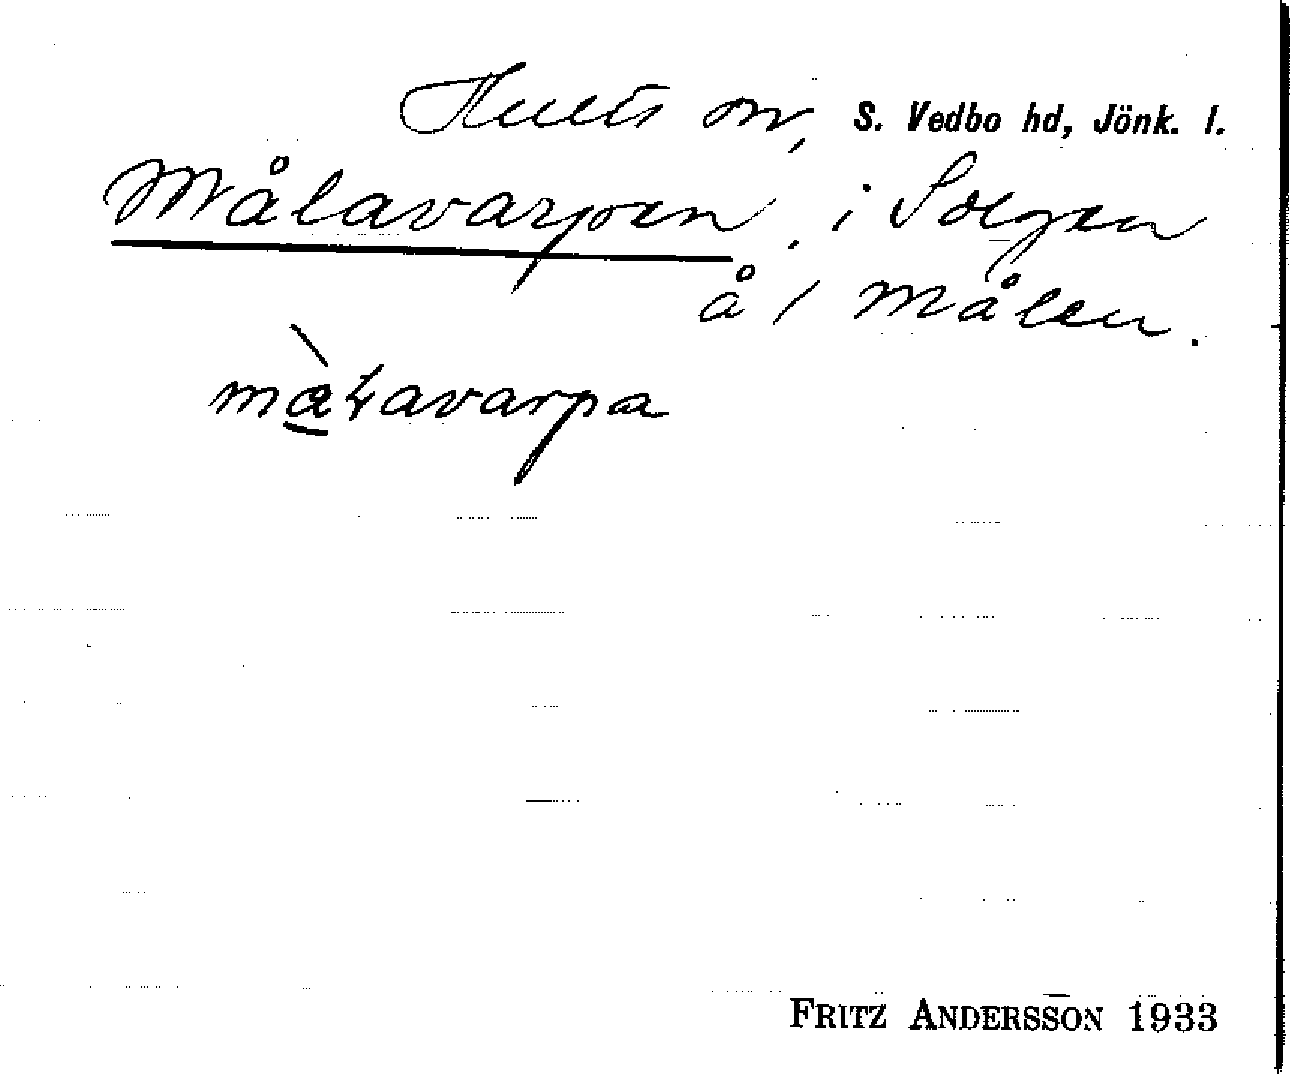 Hults sn, S. Vedbo hd, Jönk. l.
Målavarpen, i Solgen
å / Målen.
màłavarpa
FRITZ ANDERSSON 1933